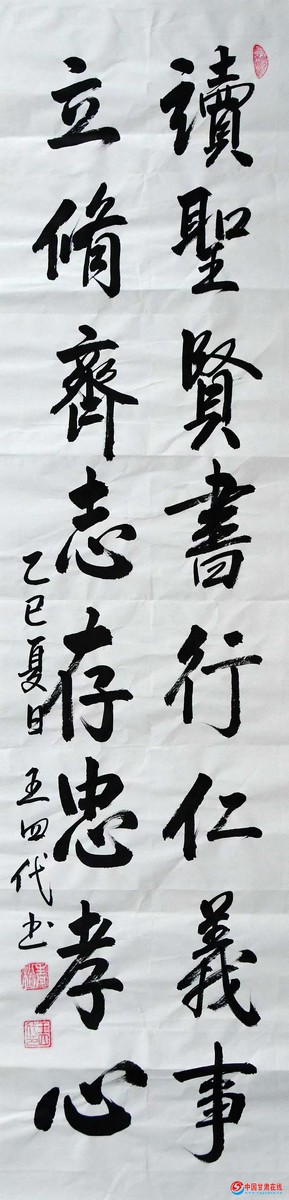 讀聖賢書行仁義事
立脩齊志存忠孝心
乙巳夏日 王四代书
中国甘肃在线